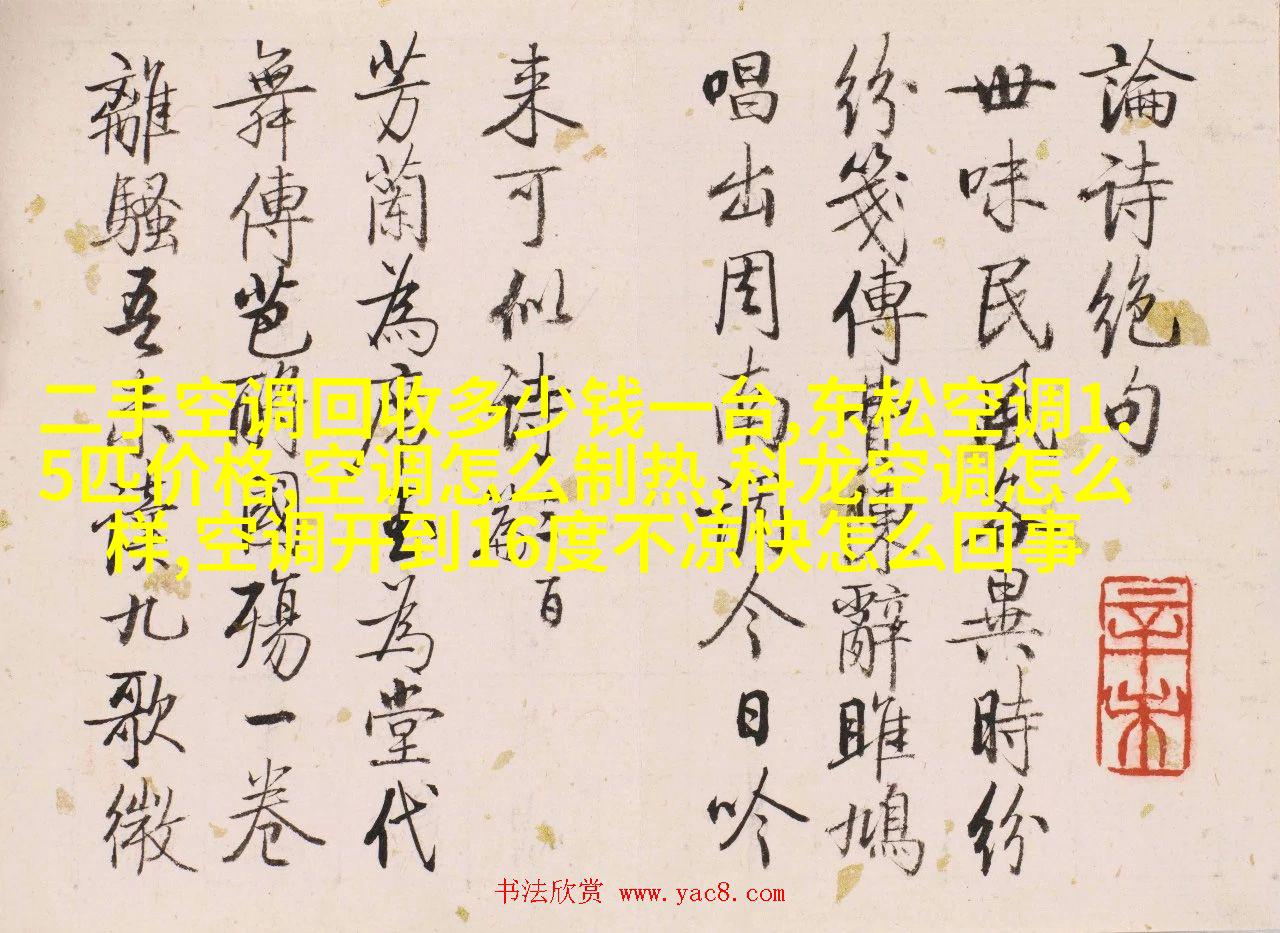 論诗绝句
世味民風各異時紛
紛箋傳辭雎鳩
唱出周南調今日吟
来可似诗百
芳蘭為席玉為堂代
舞傳芭酹國殤一卷
離騷吾未讀九歌微
辛未
二手空调回收多少钱一台,东松空调1.
5匹价格,空调怎么制热,科龙空调怎么
样,空调开到16度不凉快怎么回事
书法欣赏 www.yac8.com